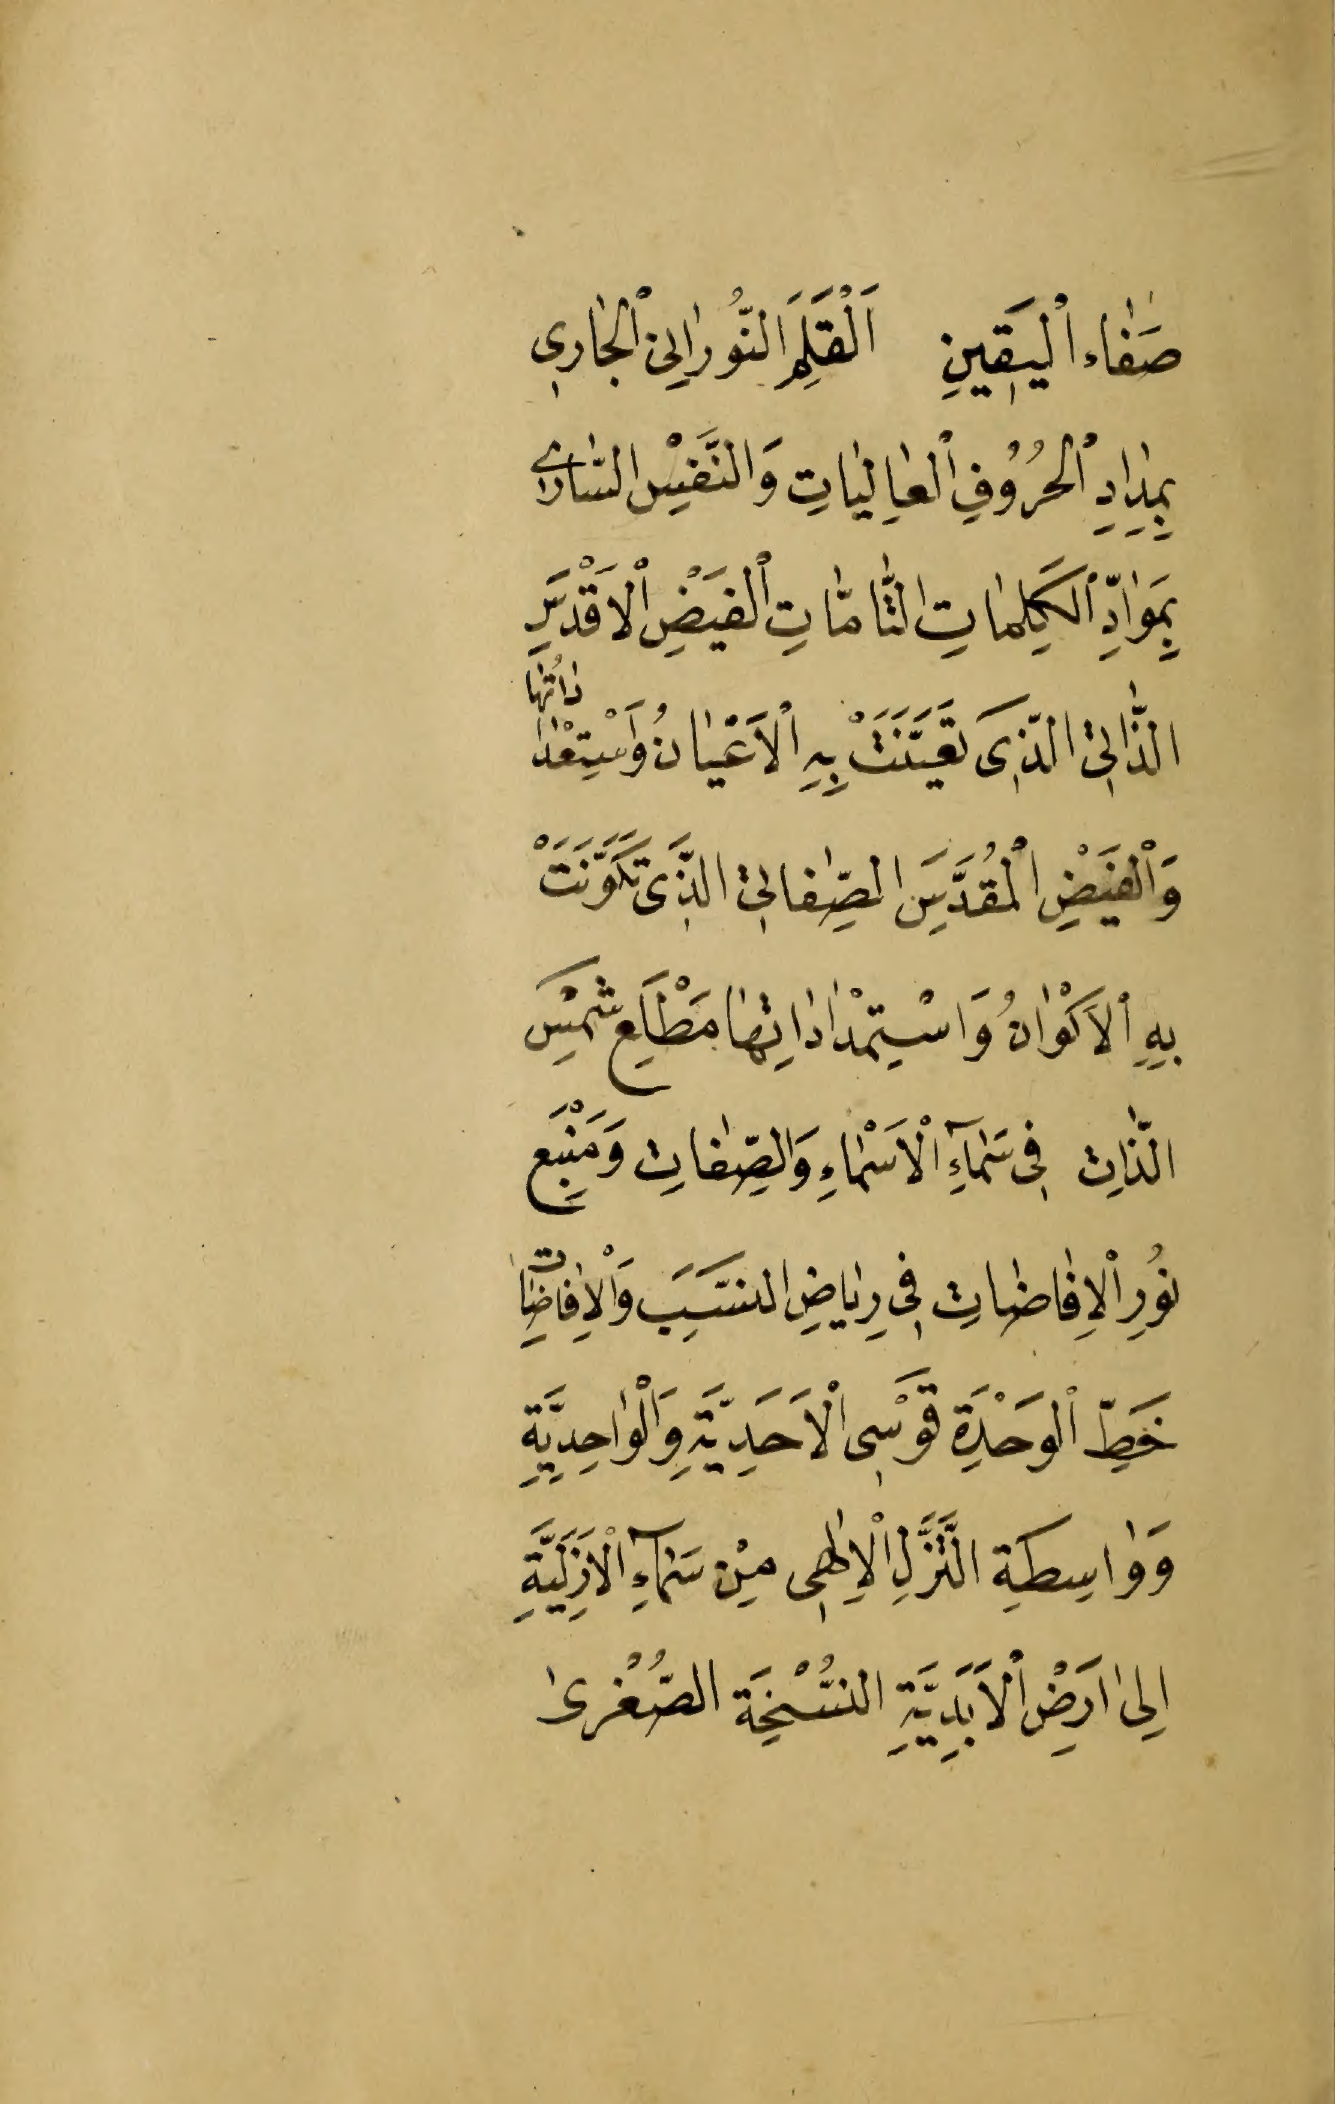 صَفَاءِ الْيَقِينِ اَلْقَلَمِ النُّورَانِي الْجَارِي
بِمِدَادِ الْحُرُوفِ الْعَالِيَاتِ وَالنَّفَسِ السَّارِي
بِمَوَادِّ الْكَلِمَاتِ التَّامَّاتِ الْفَيْضِ الْاَقْدَسِ
الذَّاتِي الَّذِي تَعَيَّنَتْ بِهِ الْاَعْيَانُ وَاسْتِعْدَادَاتُهَا
وَالْفَيْضِ الْمُقَدَّسِ الصِّفَاتِي الَّذِي تَكَوَّنَتْ
بِهِ الْاَكْوَانُ وَاسْتِمْدَادَاتِهَا مَطْلَعِ شَمْسِ
الذَّاتِ فِي سَمَآءِ الْاَسْمَاءِ وَالصِّفَاتِ وَمَنْبَعِ
نُورِ الْاِفَاضَاتِ فِي رِيَاضِ النِّسَبِ وَالْاِفَاضَاتِ
خَطِّ الْوَحْدَةِ قَوْسِي الْاَحَدِيَّةِ وَالْوَاحِدِيَّةِ
وَوَاسِطَةِ التَّنَزُّلِ الْاِلٰهِي مِنْ سَمَآءِ الْاَزَلِيَّةِ
اِلٰى اَرْضِ الْاَبَدِيَّةِ النُّسْخَةِ الصُّغْرٰى